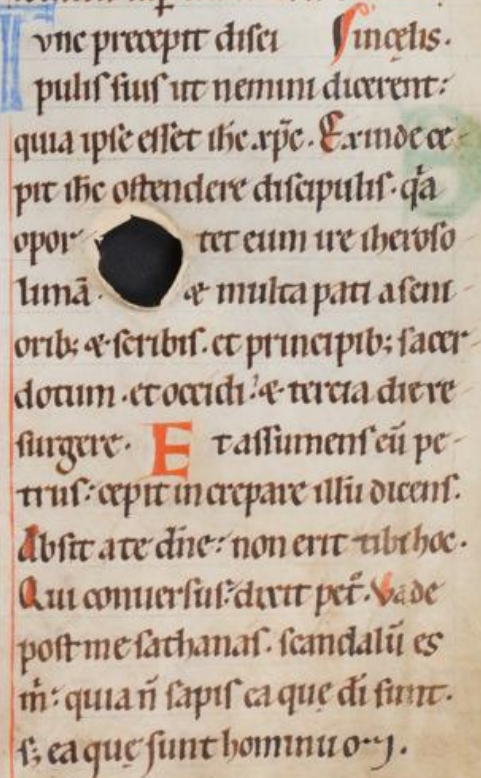 Tunc precepit disci in cęlis.
pulis suis ut nemini dicerent:
quia ipse esset ihc xp̄c. Exinde ce
pit ihc ostendere discipulis. q̇a
opor tet eum ire iheroso
limā. & multa pati a seni
orib; & scribis. et principib; sacer
dotum. et occidi: & tercia die re
surgere. Et assumens eū pe
trus: cepit increpare illū dicens.
Absit a te dn̄e: non erit tibi hoc.
Qui conuersus: dixit pet̄. Vade
post me sathanas. scandalū es
m̄: quia n̄ sapis ea quę dī sunt.
s; ea quę sunt hominu